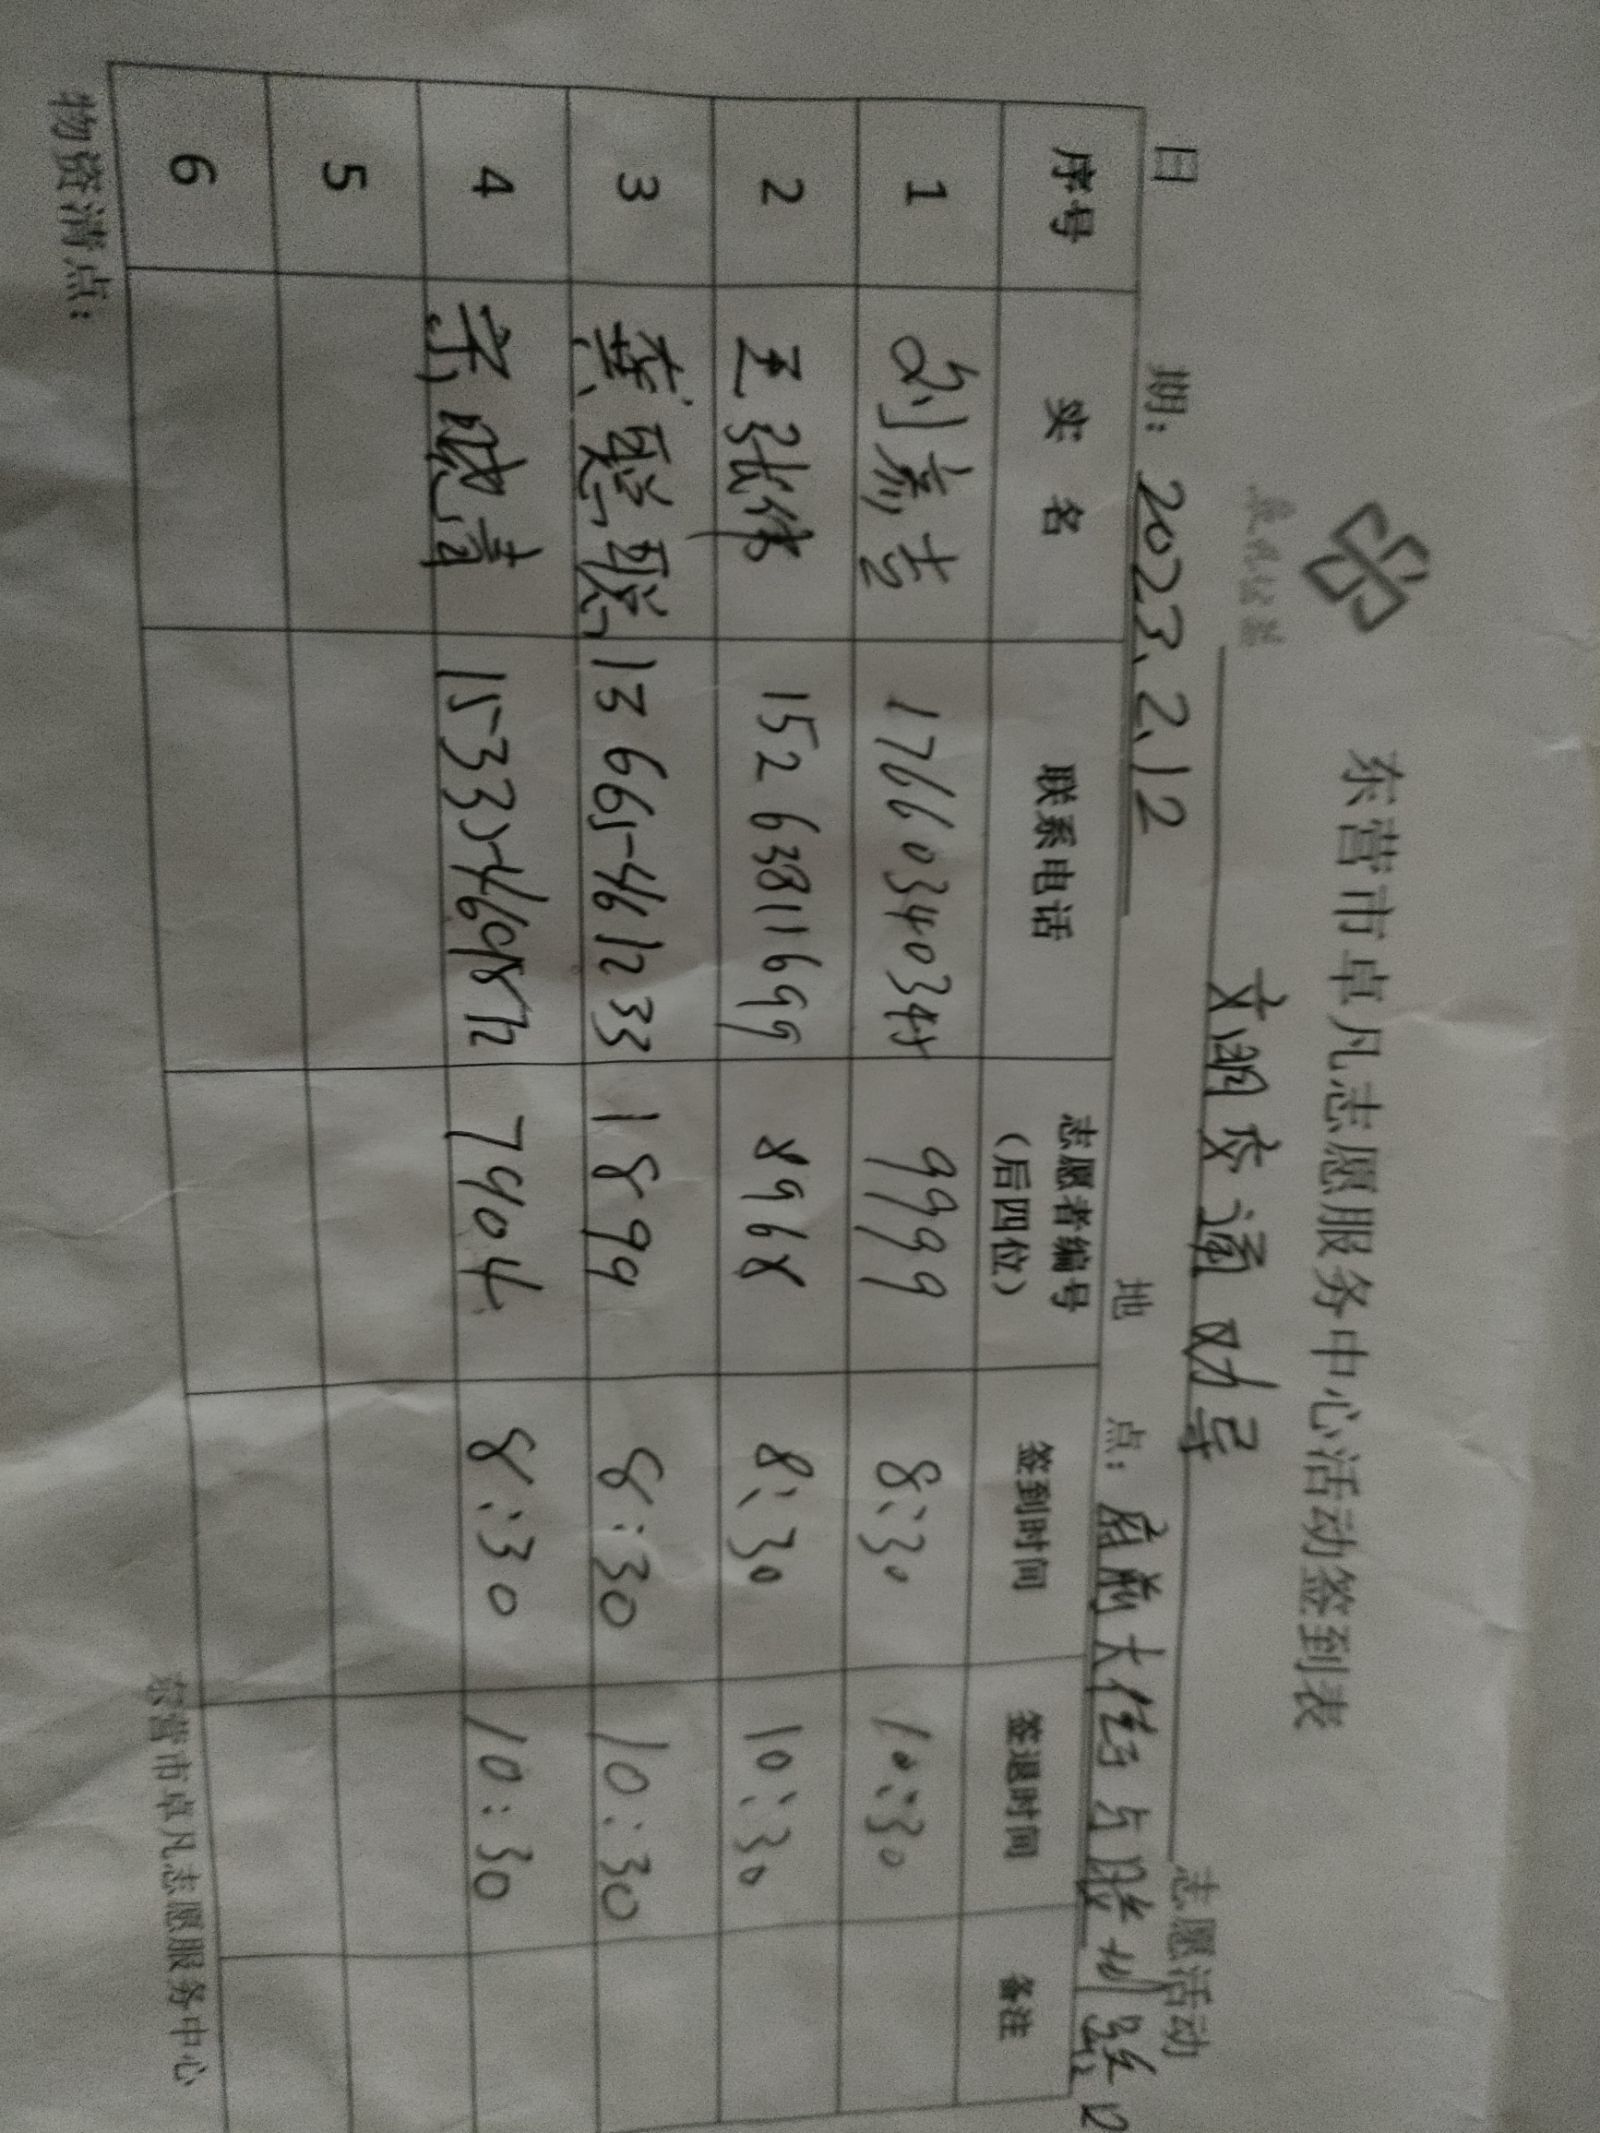 东营市卓凡志愿服务中心活动签到表
文明交通劝导 志愿活动
日 期：2023.2.12 地 点：府前大街与胜利路口
序号 实 名 联系电话 志愿者编号（后四位） 签到时间 签退时间 备注
1 刘素吉 17660340345 9999 8:30 10:30
2 王张伟 15263811699 8968 8:30 10:30
3 黄聪聪 13665461233 1899 8:30 10:30
4 宋晓青 15335469872 7904 8:30 10:30
5
6
物资清点：
东营市卓凡志愿服务中心